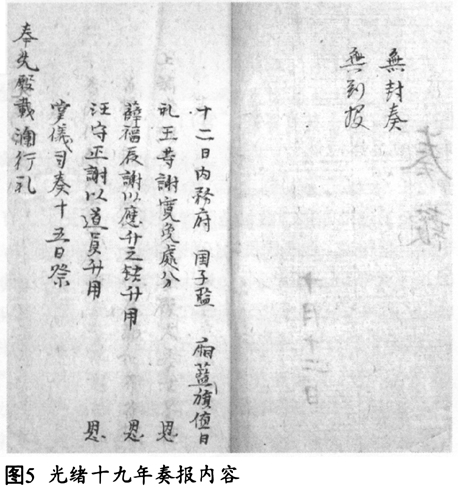 奏報
無封奏
無到报
十月十二日
十二日内務府 国子監 廂藍旗值日
礼王等謝寬免處分 恩
薛福辰謝以應升之缺升用 恩
汪守正謝以道員升用 恩
掌儀司奏十五日祭
奉先殿載瀾行礼
图5 光绪十九年奏报内容